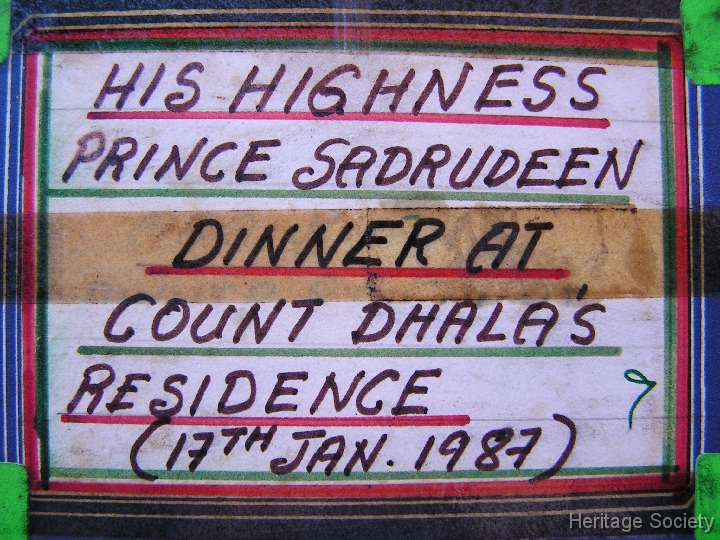 HIS HIGHNESS
PRINCE SADRUDEEN
DINNER AT
COUNT DHALA'S
RESIDENCE
(17TH JAN. 1987)
Heritage Society